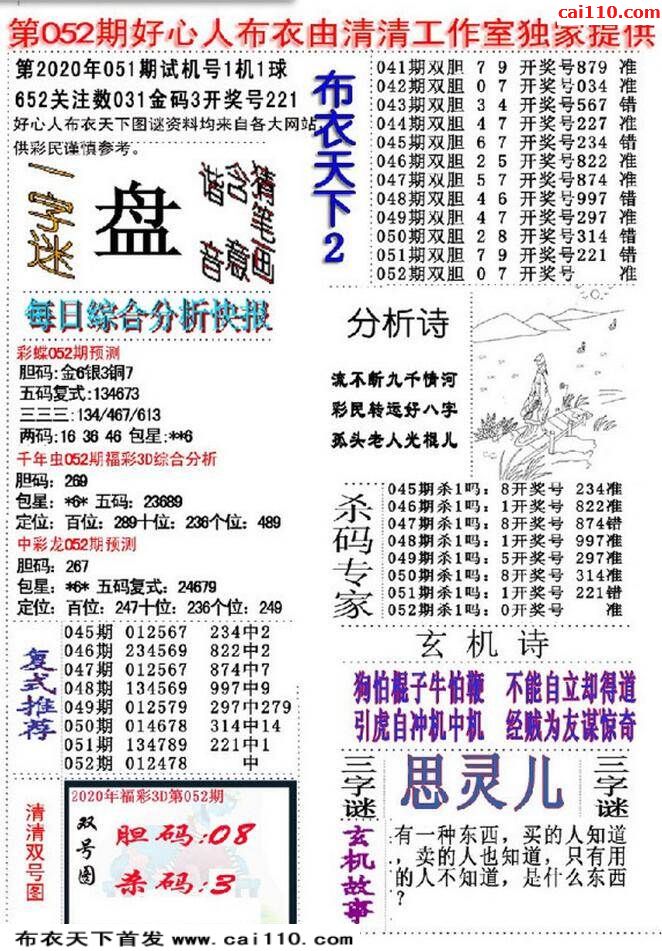 cai110.com
第052期好心人布衣由清清工作室独家提供
第2020年051期试机号1机1球
652关注数031金码3开奖号221
好心人布衣天下图谜资料均来自各大网站,
供彩民谨慎参考。
一字迷
盘
谐音
含意
猜笔画
布衣天下2
041期双胆 7 9 开奖号879 准
042期双胆 0 7 开奖号034 准
043期双胆 3 4 开奖号567 错
044期双胆 4 7 开奖号227 准
045期双胆 6 7 开奖号234 错
046期双胆 2 5 开奖号822 准
047期双胆 5 7 开奖号874 准
048期双胆 4 6 开奖号997 错
049期双胆 4 7 开奖号297 准
050期双胆 2 8 开奖号314 错
051期双胆 7 9 开奖号221 错
052期双胆 0 7 开奖号 准
每日综合分析快报
彩蝶052期预测
胆码:金6银3铜7
五码复式:134673
三三三:134/467/613
两码:16 36 46 包星:**6
千年虫052期福彩3D综合分析
胆码: 269
包星: *6* 五码: 23689
定位: 百位: 289十位: 236个位: 489
中彩龙052期预测
胆码: 267
包星: *6* 五码复式: 24679
定位: 百位: 247十位: 236个位: 249
分析诗
流不断九千情河
彩民转运好八字
孤头老人光棍儿
杀码专家
045期杀1吗: 8开奖号 234准
046期杀1吗: 1开奖号 822准
047期杀1吗: 8开奖号 874错
048期杀1吗: 1开奖号 997准
049期杀1吗: 5开奖号 297准
050期杀1吗: 8开奖号 314准
051期杀1吗: 1开奖号 221错
052期杀1吗: 0开奖号 准
复式推荐
045期 012567 234中2
046期 234569 822中2
047期 012567 874中7
048期 134569 997中9
049期 012579 297中279
050期 014678 314中14
051期 134789 221中1
052期 012478 中
玄机诗
狗怕棍子牛怕鞭 不能自立却得道
引虎自冲机中机 经贼为友谋惊奇
三字谜
思灵儿
三字谜
清清双号图
2020年福彩3D第052期
双号图
胆码:08
杀码:3
玄机故事
有一种东西,买的人知道
,卖的人也知道,只有用
的人不知道,是什么东西
?
布衣天下首发 www.cai110.com